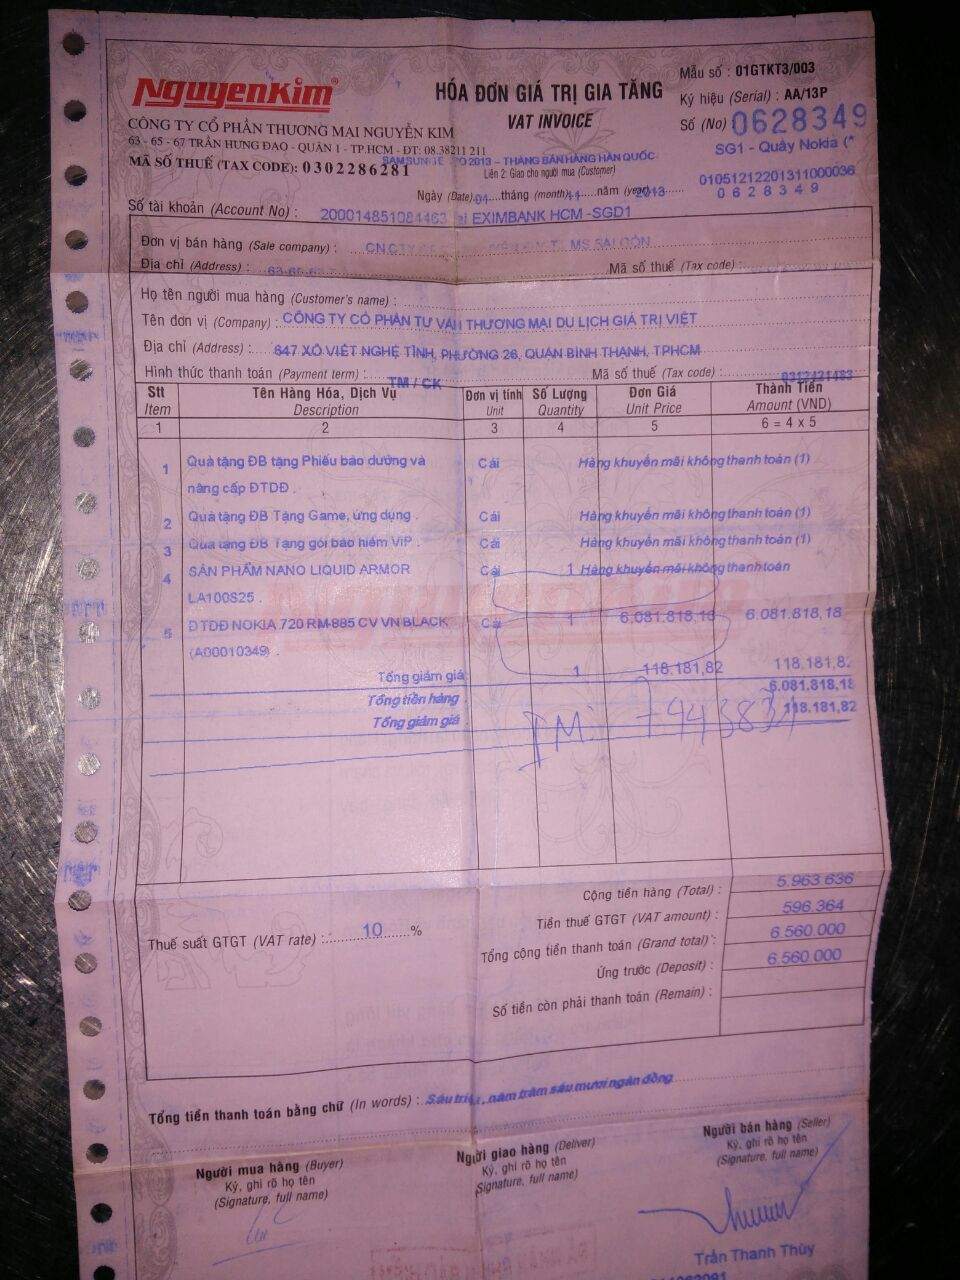 NguyenKim®
HÓA ĐƠN GIÁ TRỊ GIA TĂNG
VAT INVOICE
Mẫu số : 01GTKT3/003
Ký hiệu (Serial) : AA/13P
Số (No) 0628349
SG1 - Quầy Nokia (*
CÔNG TY CỔ PHẦN THƯƠNG MẠI NGUYỄN KIM
63 - 65 - 67 TRẦN HƯNG ĐẠO - QUẬN 1 - TP.HCM - ĐT: 08.38211 211
MÃ SỐ THUẾ (TAX CODE): 0302286281
2013 – THÁNG BÁN HÀNG HÀN QUỐC
Liên 2: Giao cho người mua (Customer)
01051212201311000036
0628349
Ngày (Date) 04 tháng (month) 11 năm (year) 2013
Số tài khoản (Account No) : 200014851084463 EXIMBANK HCM -SGD1
Đơn vị bán hàng (Sale company) :
Địa chỉ (Address) :
Mã số thuế (Tax code) :
Họ tên người mua hàng (Customer's name) :
Tên đơn vị (Company) : CÔNG TY CỔ PHẦN TƯ VẤN THƯƠNG MẠI DU LỊCH GIÁ TRỊ VIỆT
Địa chỉ (Address) : 647 XÔ VIẾT NGHỆ TĨNH, PHƯỜNG 26, QUẬN BÌNH THẠNH, TPHCM
Hình thức thanh toán (Payment term) : TM / CK Mã số thuế (Tax code) : 0312421483
Stt Tên Hàng Hóa, Dịch Vụ Đơn vị tính Số Lượng Đơn Giá Thành Tiền
Item Description Unit Quantity Unit Price Amount (VND)
1 2 3 4 5 6 = 4 x 5
1 Quà tặng ĐB tặng Phiếu bảo dưỡng và Cái Hàng khuyến mãi không thanh toán (1)
nâng cấp ĐTDĐ .
2 Quà tặng ĐB Tặng Game, ứng dụng . Cái Hàng khuyến mãi không thanh toán (1)
3 Quà tặng ĐB Tặng gói bảo hiểm VIP . Cái Hàng khuyến mãi không thanh toán (1)
4 SẢN PHẨM NANO LIQUID ARMOR Cái 1 Hàng khuyến mãi không thanh toán
LA100S25 .
5 ĐTDĐ NOKIA 720 RM-885 CV VN BLACK Cái 1 6.081.818,18 6.081.818,18
(A00010349) .
Tổng giảm giá 1 118.181,82 118.181,82
Tổng tiền hàng 6.081.818,18
Tổng giảm giá 118.181,82
Cộng tiền hàng (Total) : 5.963.636
Tiền thuế GTGT (VAT amount) : 596.364
Thuế suất GTGT (VAT rate) : 10 %
Tổng cộng tiền thanh toán (Grand total) : 6.560.000
Ứng trước (Deposit) : 6.560.000
Số tiền còn phải thanh toán (Remain) :
Tổng tiền thanh toán bằng chữ (In words) : Sáu triệu, năm trăm sáu mươi ngàn đồng
Người mua hàng (Buyer)
Ký, ghi rõ họ tên
(Signature, full name)
Người giao hàng (Deliver)
Ký, ghi rõ họ tên
(Signature, full name)
Người bán hàng (Seller)
Ký, ghi rõ họ tên
(Signature, full name)
Trần Thanh Thùy